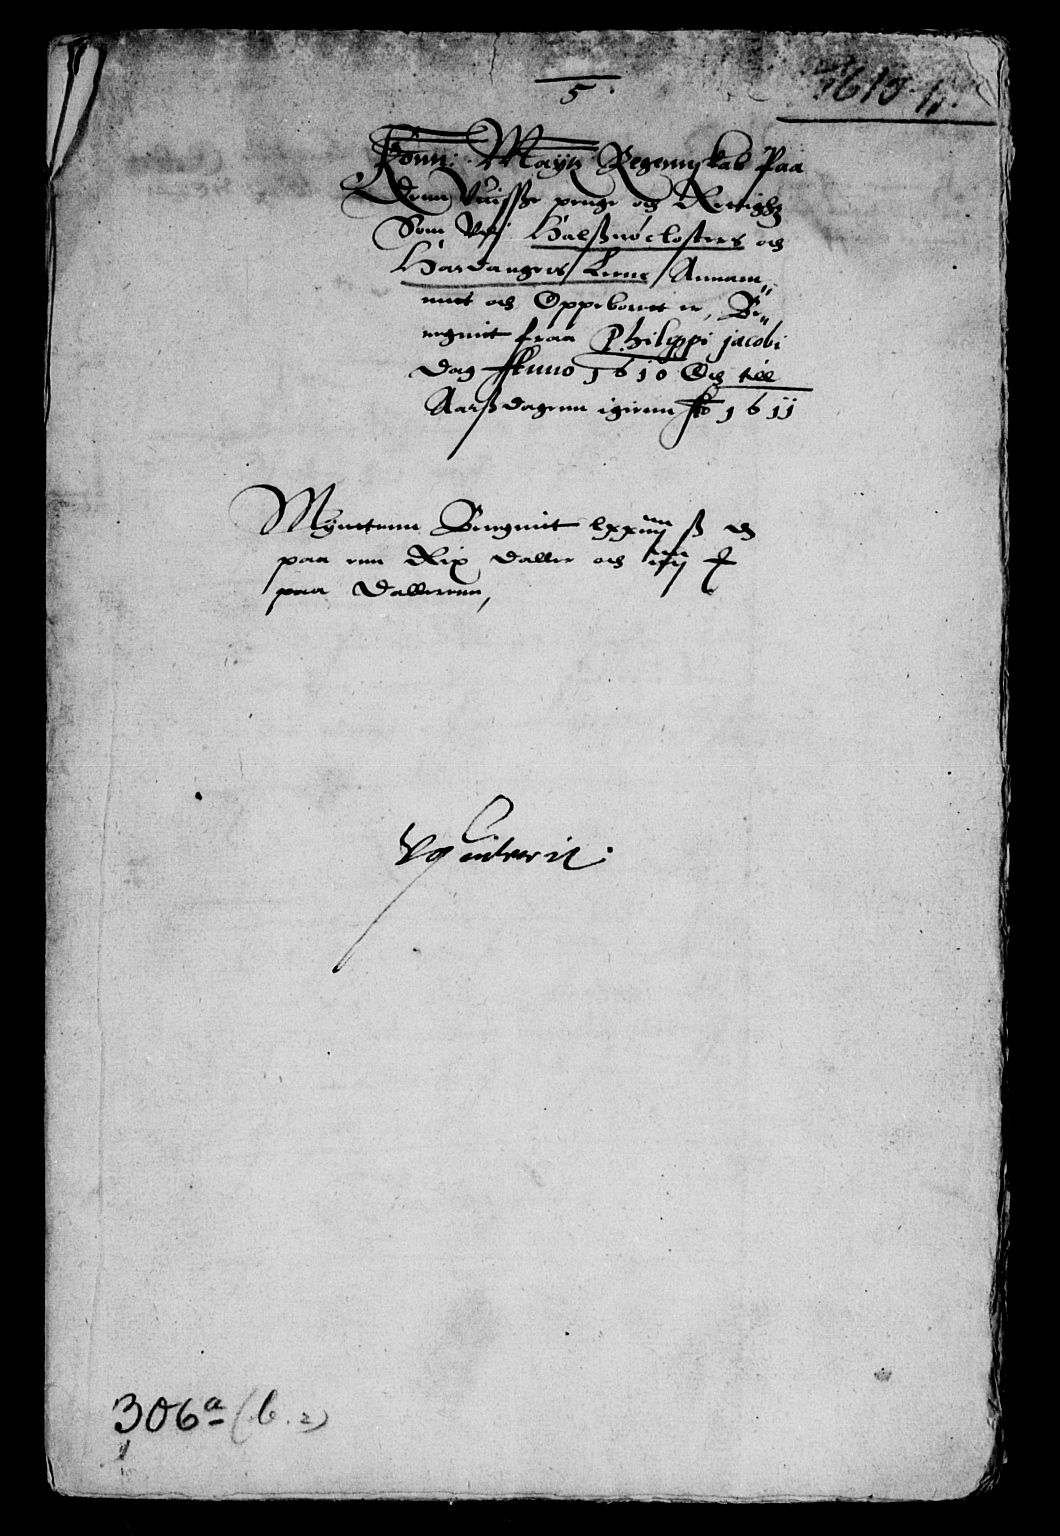 1610-11.
5.
Konn: Maytz Regennskab Paa
Denn Vuissze penge och Rettighz
Som Vdj Halsznøe closters och
Hardangers Lenne Annam„
mit och Oppeboret er, Be„
regnit fraa Philippi jacobi
dag Anno 1610 Och till
Aarszdagenn igienn Ao 1611
Mynttenn Beregnit lxxiiij ß d
paa enn Rix daller och iiij
paa Dallerenn,
306a (b. 2)